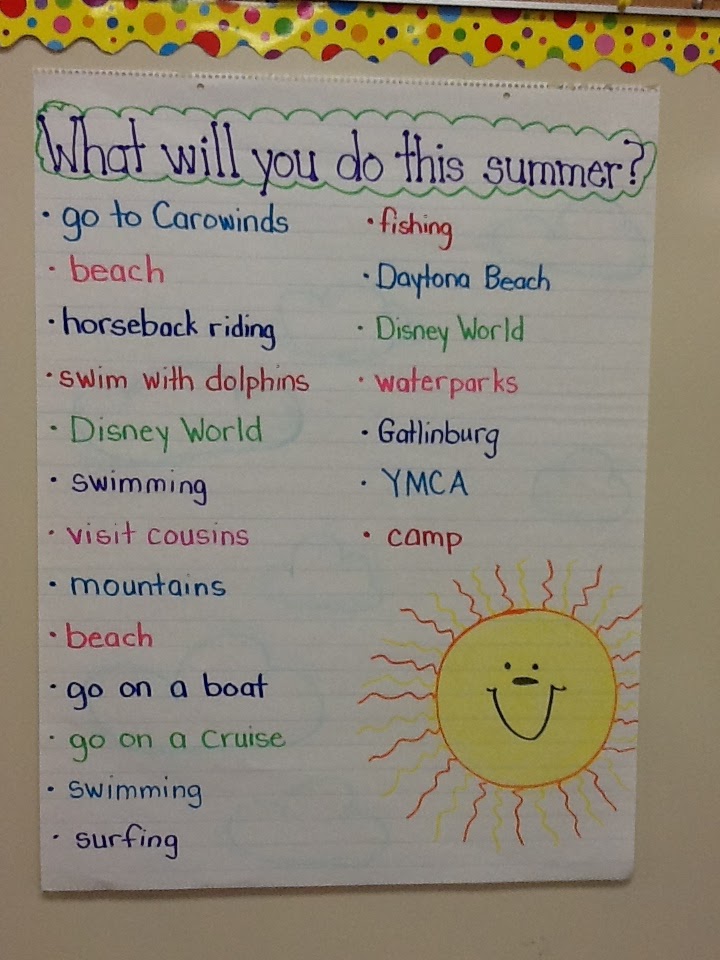 What will you do this summer?
• go to Carowinds
• beach
• horseback riding
• swim with dolphins
• Disney World
• swimming
• visit cousins
• mountains
• beach
• go on a boat
• go on a cruise
• swimming
• surfing
• fishing
• Daytona Beach
• Disney World
• waterparks
• Gatlinburg
• YMCA
• camp